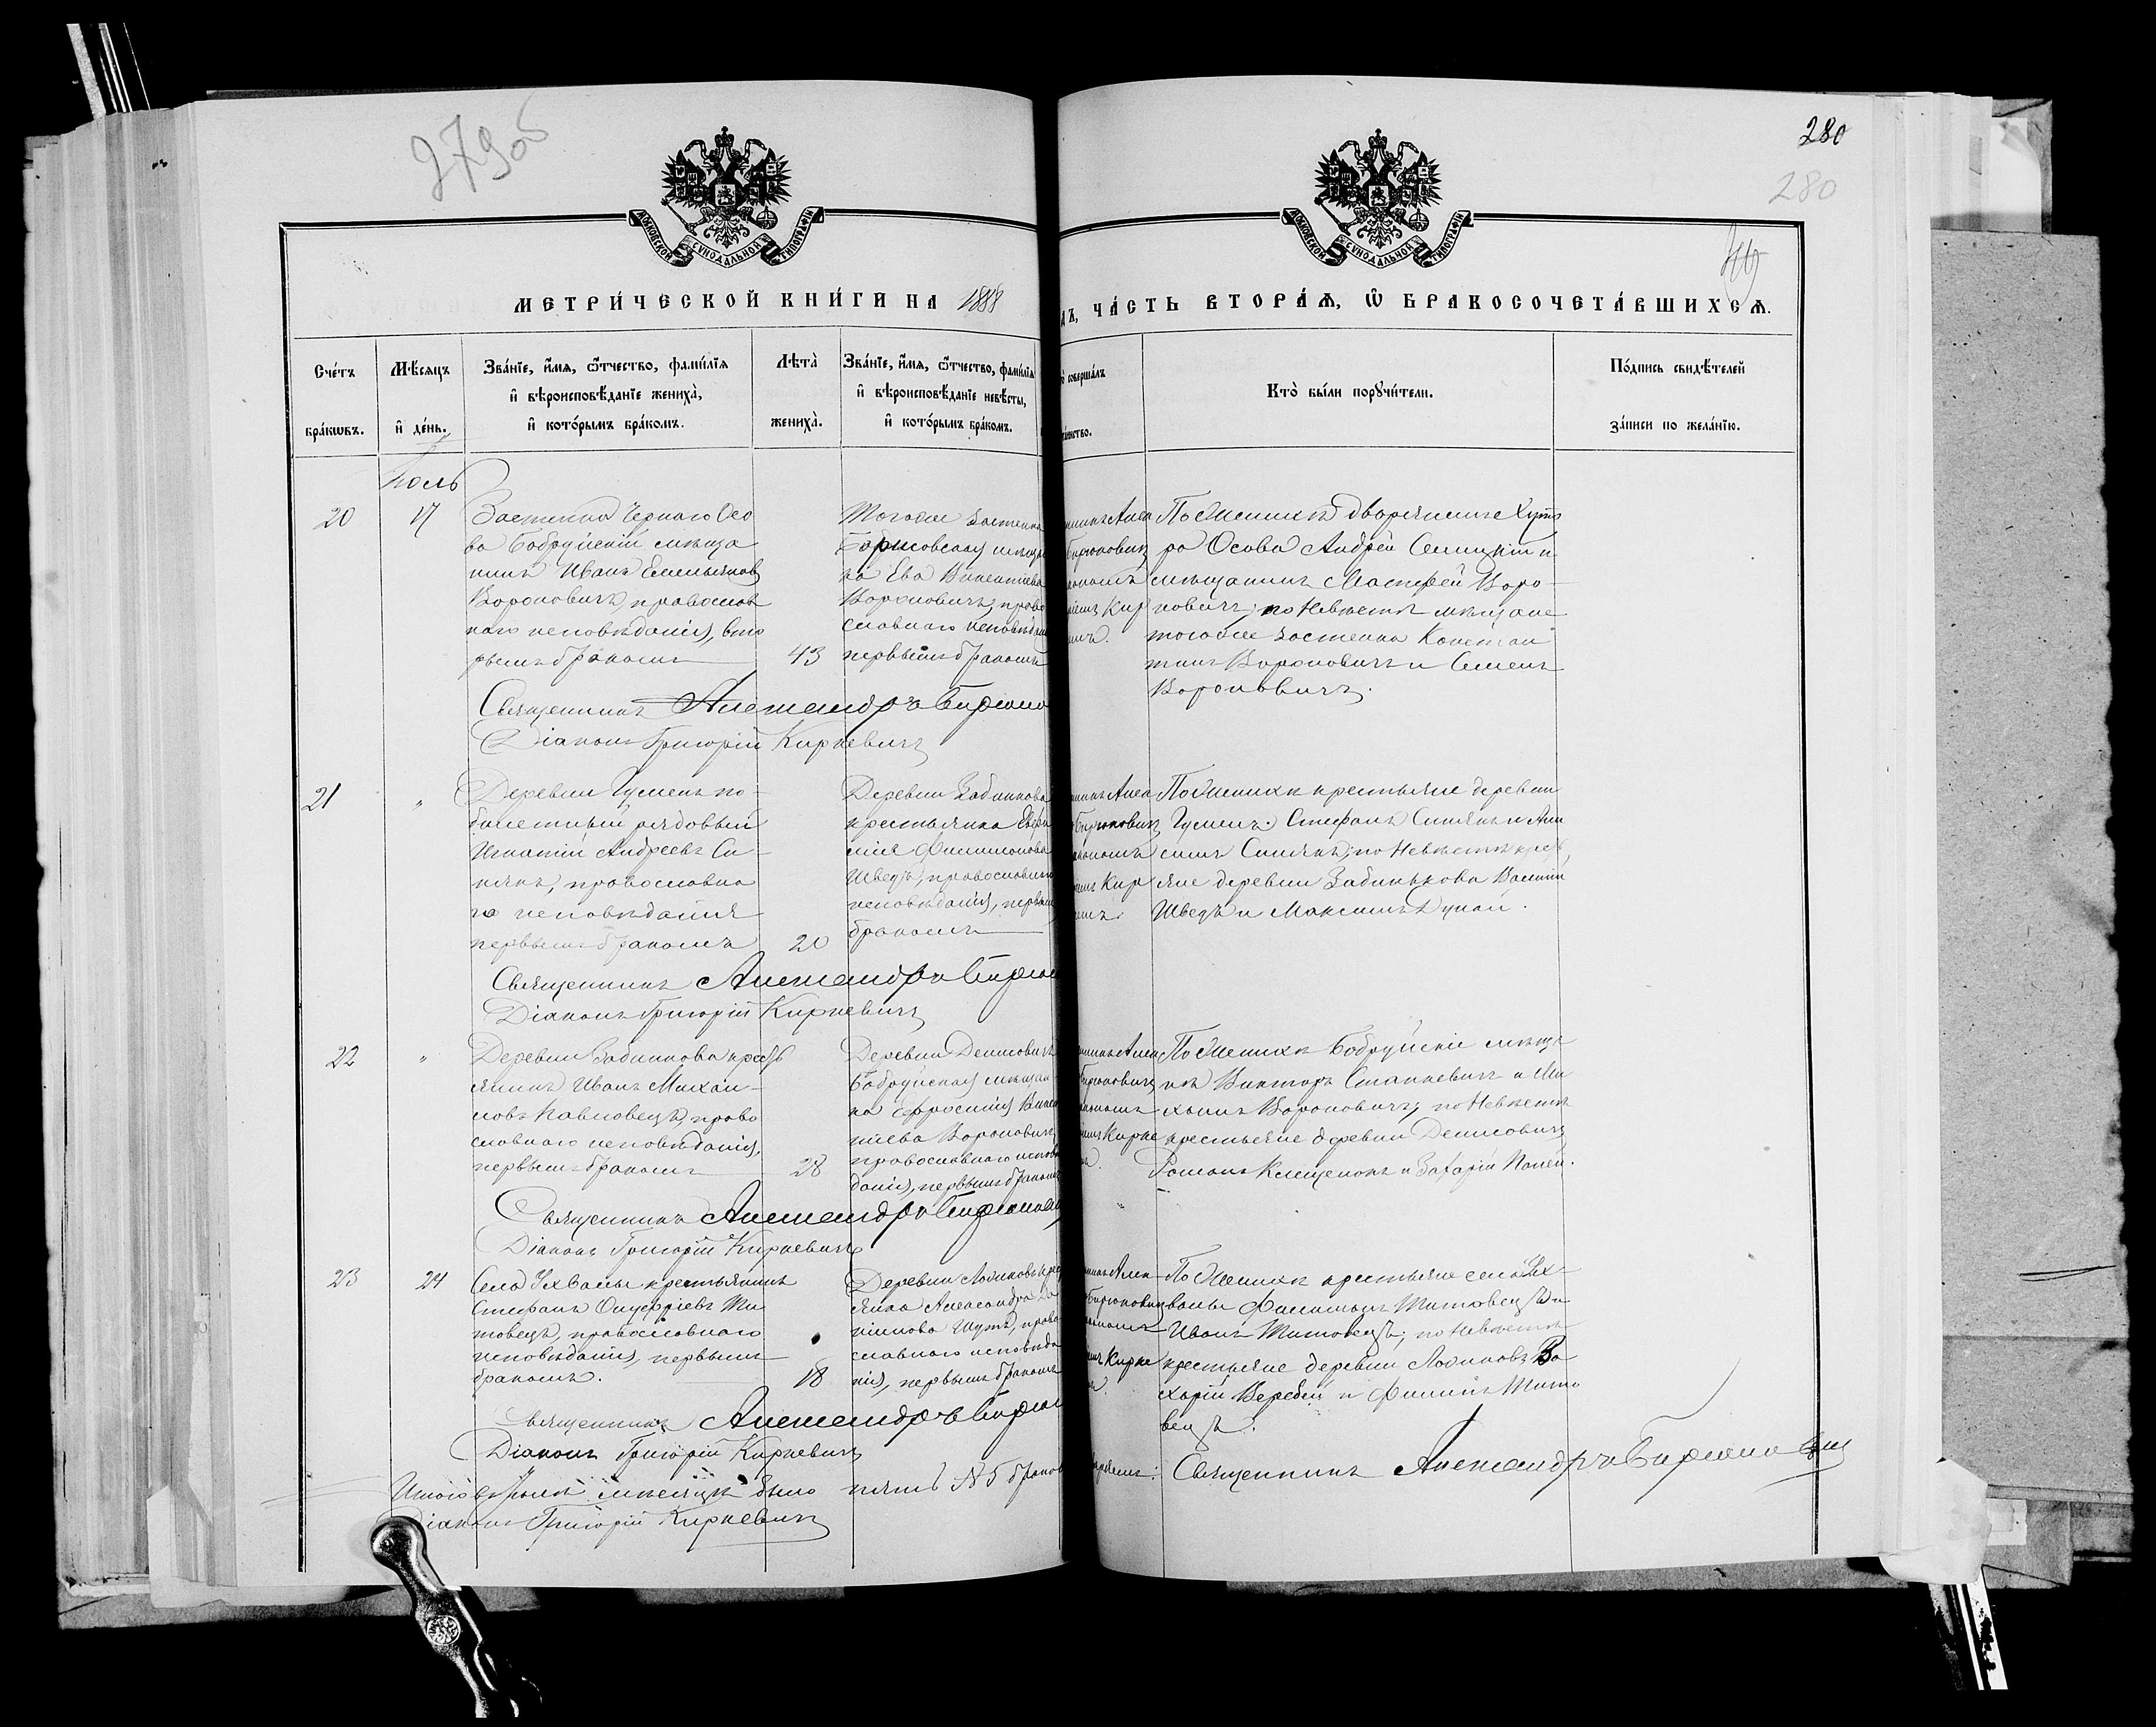 279об
280
280
МОСКОВСКОЙ СѴНОДАЛЬНОЙ ТИПОГРАФІИ
МОСКОВСКОЙ СѴНОДАЛЬНОЙ ТИПОГРАФІИ
МЕТРИ́ЧЕСКОЙ КНИ́ГИ НА 1888
ДЪ, ЧА́СТЬ ВТОРА́Ѧ, Ѽ БРАКОСОЧЕТА́ВШИХСѦ.
Сче́тъ
бра́кѡвъ.
Мѣ́сяцъ
и҆ де́нь.
Зва́нїе, и҆́мѧ, ѻ҆́тчество, фами́лїѧ
и҆ вѣроисповѣ́данїе жениха̀,
и҆ кото́рымъ бра́комъ.
Лѣта̀
жениха̀.
Зва́нїе, и҆́мѧ, ѻ҆́тчество, фами́лїѧ
и҆ вѣроисповѣ́данїе невѣ́сты,
и҆ кото́рымъ бра́комъ.
совершáлъ
Кто̀ бы́ли порꙋчи́тели.
По́дпись свидѣ́телей
за́писи по жела́нїю.
Іюль
20
17
Застенка Чернаго Осо
ва Бобруйскій мѣща
нинъ Иванъ Емельяновъ
Вороновичъ, православ
наго исповѣданія, вто
рымъ бракомъ
43
Тогоже застенка
Борисовская мѣщан
ка Ева Викентіева
Вороновичъ, право
славнаго исповѣдан
первымъ бракомъ
По Женихѣ дворянине Хуто
ра Осова Андрей Сен
мѣщанинъ Матфей Воро-
новичъ; по Невѣстѣ мѣщане
тогоже застенка Констан
тинъ Вороновичъ и Семенъ
Вороновичъ.
Священникъ Александръ Бирюко
Діаконъ Григорій Киркевичъ
21
"
Деревни Гуменъ по-
билетный рядовый
Игнатій Андреевъ Си-
някъ, православна
го исповѣданія
первымъ бракомъ
20
Деревни Задинкова
крестьянка Евфи
мія Филимонова
Шведъ, православнаго
исповѣданія, первым
бракомъ
По Женихѣ крестьяне деревни
Гуменъ Стефанъ Синякъ и Ани
симъ Синякъ; по Невѣстѣ кресть
яне деревни Задинькова Василій
Шведъ и Максимъ Дунай.
Священникъ Александръ Бирюко
Діаконъ Григорій Киркевичъ
22
"
Деревни Задинкова кресть
янинъ Иванъ Михаи-
ловъ Павловецъ, право
славнаго исповѣданія,
первымъ бракомъ
28
Деревни Денисовичъ
Бобруйская мѣщан
ка Ефросинія Викен
тіева Вороновичъ
православнаго исповѣ
данія, первымъ бракомъ
По Женихѣ Бобруйскіе мѣща
не Викторъ Станкевичъ и Ми
хаилъ Вороновичъ; по Невѣстѣ
крестьяне деревни Денисовичъ
Романъ Клещенокъ и Захарій Папей.
Священникъ Александръ Бирюкович
Діаконъ Григорій Киркевичъ
23
24
Села Ухвалы крестьянинъ
Стефанъ Онуфріевъ Ти
товецъ, православнаго
исповѣданія, первымъ
бракомъ.
18
Деревни Ложиковъ крес
янка Александра
Шутъ, право
славнаго исповѣда
нія, первымъ бракомъ
По Женихѣ крестьяне села Ух-
валы Филимонъ Титовецъ и
Иванъ Титовецъ; по Невѣстѣ
крестьяне деревни Ложиковъ За
харій Веребей и Филипъ Тито
вецъ.
Священникъ Александръ Бирюко
Діаконъ Григорій Киркевичъ
Итого въ Іюлѣ мѣсяцѣ было пять №5 браков
Священникъ Александръ Бирюкович
Діаконъ Григорій Киркевичъ